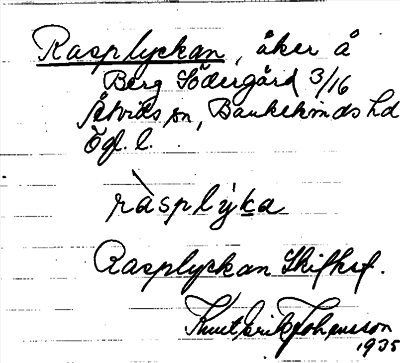 Rasplyckan, åker å
Berg Södergård 3/16
Åtvids sn, Bankekinds hd
Ögl. l.
ràsplýka
Rasplyckan Skifksf.
Knut Erik Johansson
1935